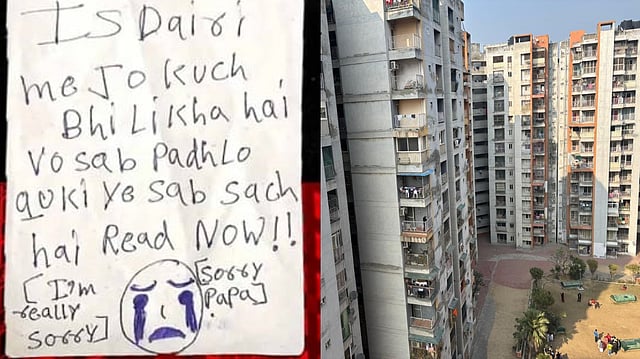 Is Dairi
me Jo kuch
Bhi Likha hai
vo sab Padhlo
quki ye sab sach
hai Read NOW!!
[I'm really sorry]
[sorry Papa]